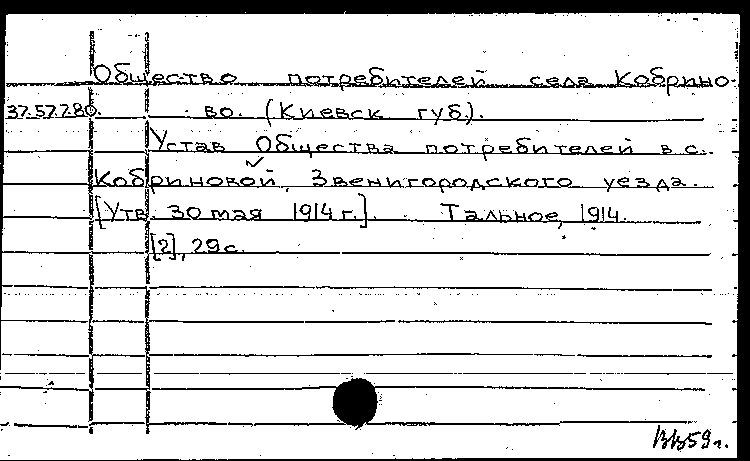 Общество потребителей села Кобрино-
37.57.7.80. во. (Киевск губ.).
Устав Общества потребителей в с.
Кобриновой, Звенигородского уезда.
[Утв. 30 мая 1914 г.]. Тальное, 1914.
[2], 29 с.